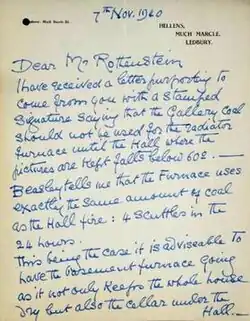 7th Nov. 1940
HELLENS,
MUCH MARCLE,
LEDBURY.
Dear Mr Rottenstein
I have received a letter purporting to
come from you with a stamped
signature saying that the Gallery Coal
should not be used for the radiator
furnace until the Hall where the
pictures are kept falls below 60£ —
Beasley tells me that the Furnace uses
exactly the same amount of coal
as the Hall fire: 4 scuttles in the
24 hours.
This being the case it is adviseable to
have the basement furnace going
as it not only keeps the whole house
dry but also the cellar under the
Hall. —